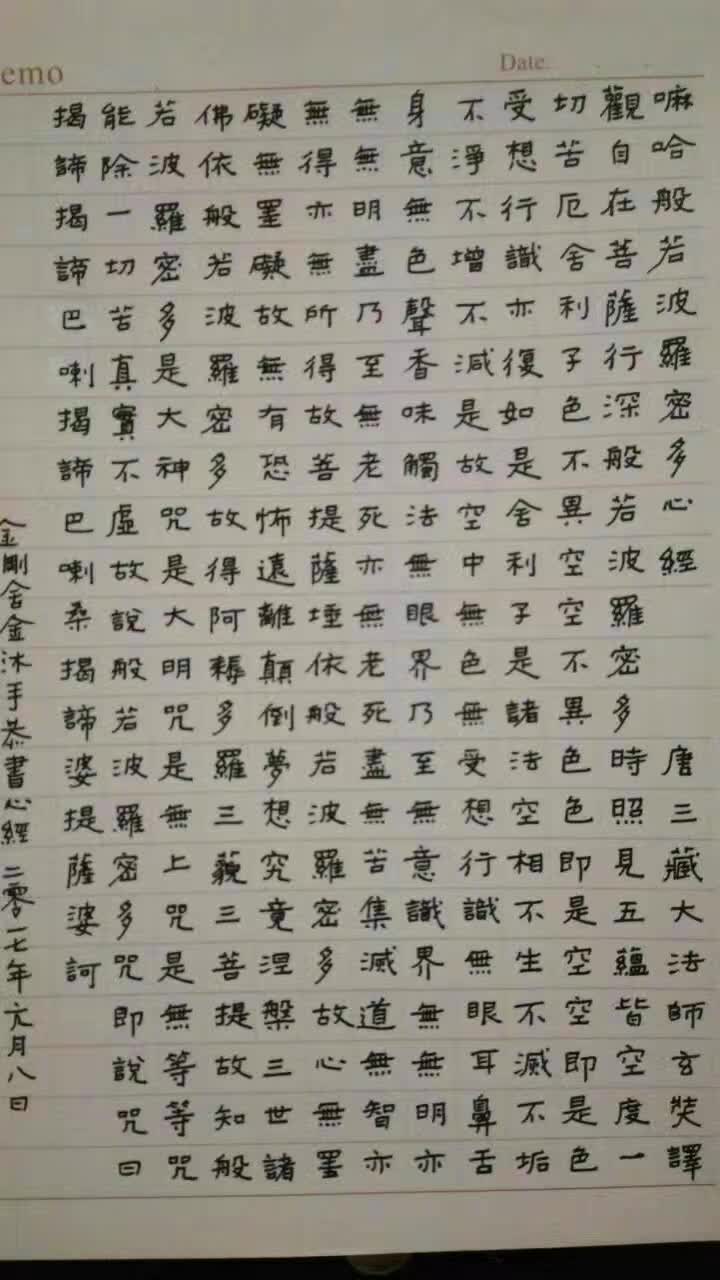 嘛哈般若波羅密多心經 唐三藏大法師玄奘譯
觀自在菩薩行深般若波羅密多時照見五蘊皆空度一
切苦厄舍利子色不異空空不異色色即是空空即是色
受想行識亦復如是舍利子是諸法空相不生不滅不垢
不淨不增不減是故空中無色無受想行識無眼耳鼻舌
身意無色聲香味觸法無眼界乃至無意識界無無明亦
無無明盡乃至無老死亦無老死盡無苦集滅道無智亦
無得亦無所得故菩提薩埵依般若波羅密多故心無罣
礙無罣礙故無有恐怖遠離顛倒夢想究竟涅槃三世諸
佛依般若波羅密多故得阿耨多羅三藐三菩提故知般
若波羅密多是大神咒是大明咒是無上咒是無等等咒
能除一切苦真實不虛故說般若波羅密多咒即說咒曰
揭諦揭諦巴喇揭諦巴喇桑揭諦婆提薩婆訶
金剛舍金沐手恭書心經 二零一七年六月八日
emo
Date.